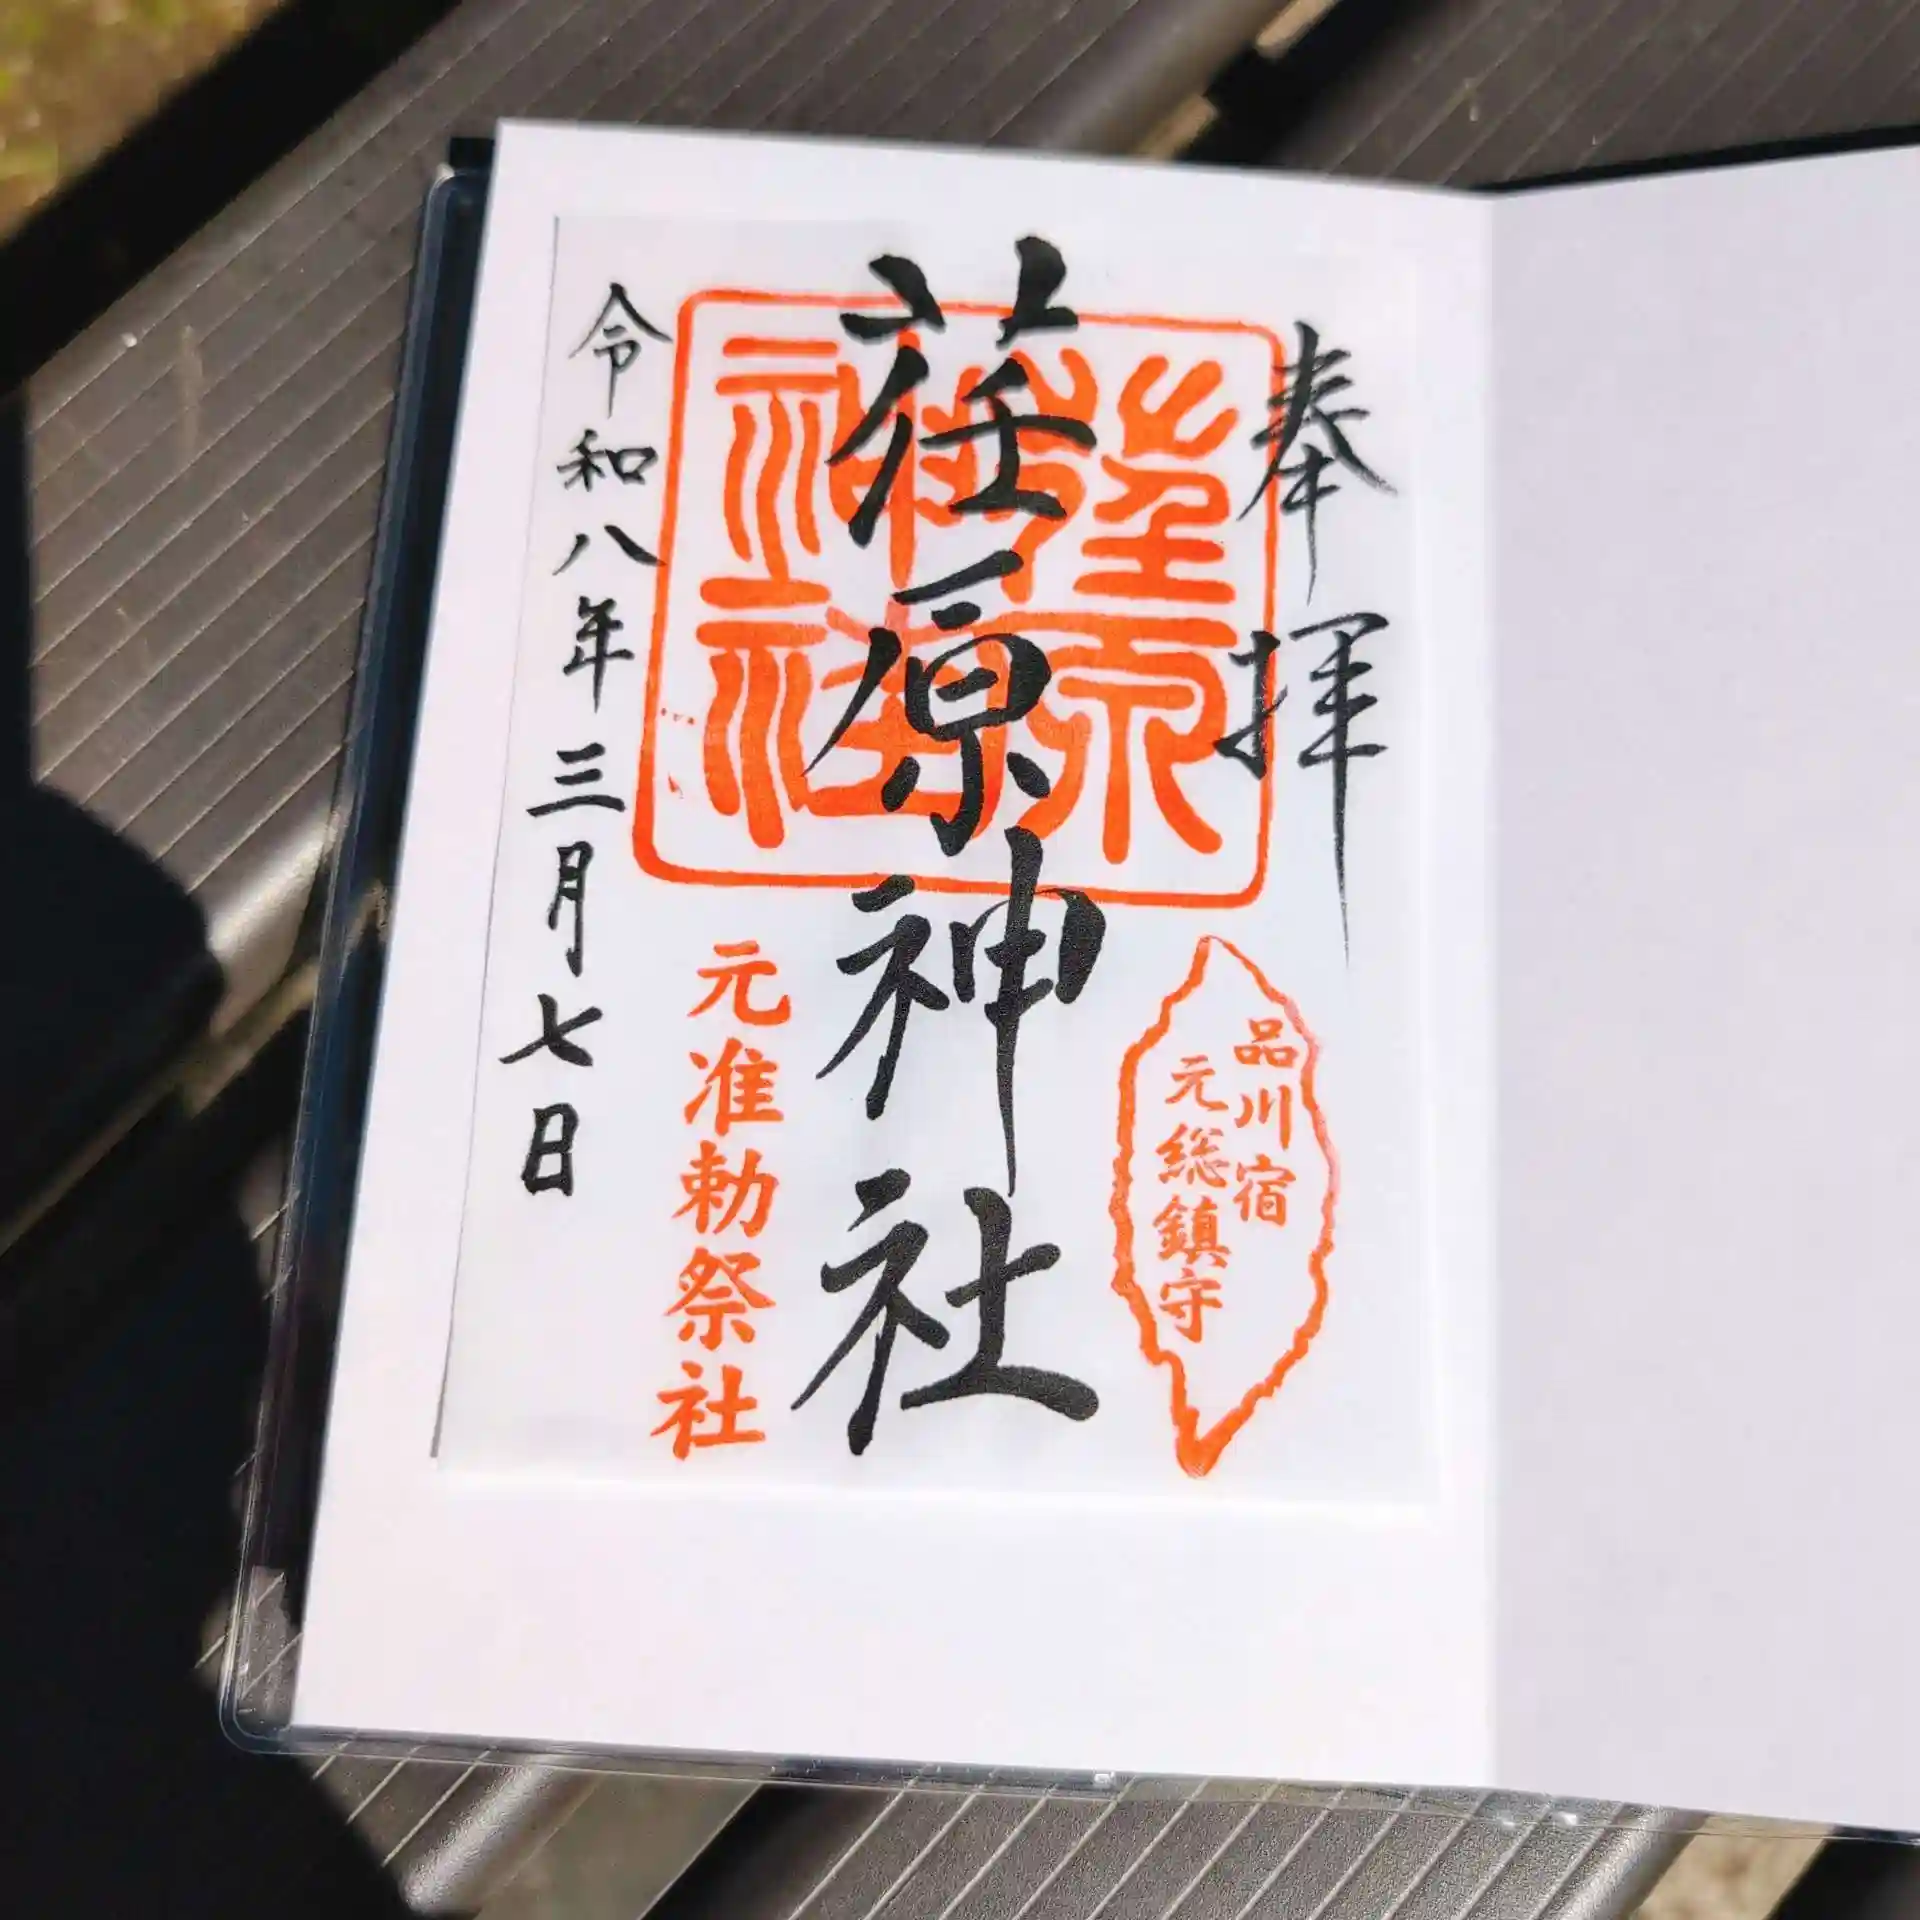 奉拝
品川宿
元総鎮守
荏原神社
元准勅祭社
令和八年三月七日